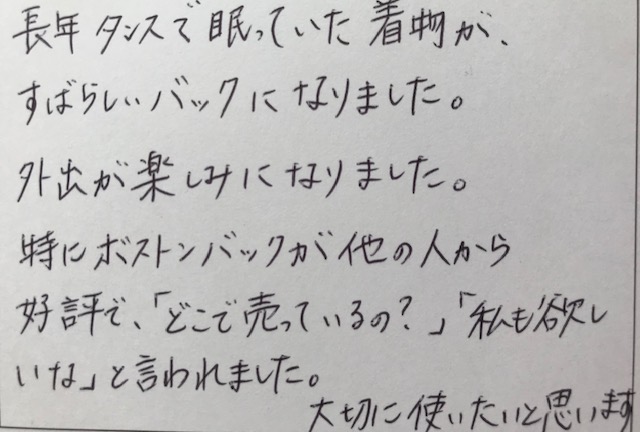 長年タンスで眠っていた着物が、
すばらしいバックになりました。
外出が楽しみになりました。
特にボストンバックが他の人から
好評で、「どこで売っているの?」「私も欲し
いな」と言われました。
大切に使いたいと思います